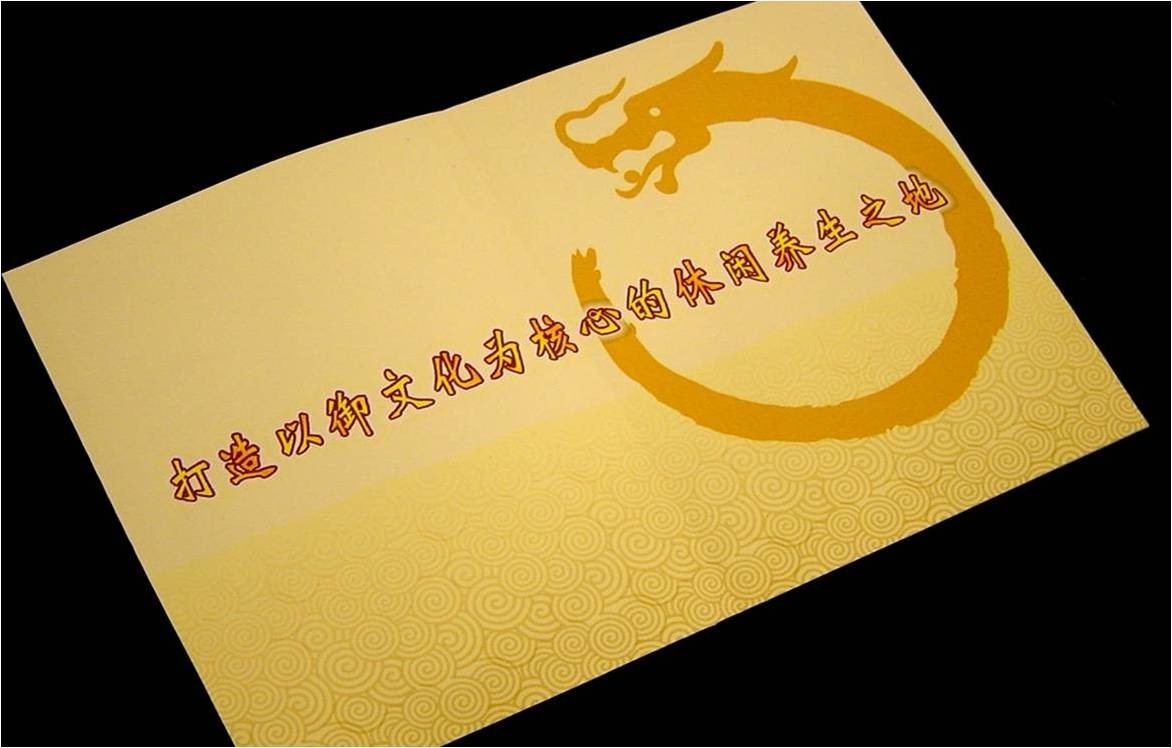 打造以御文化为核心的休闲养生之地